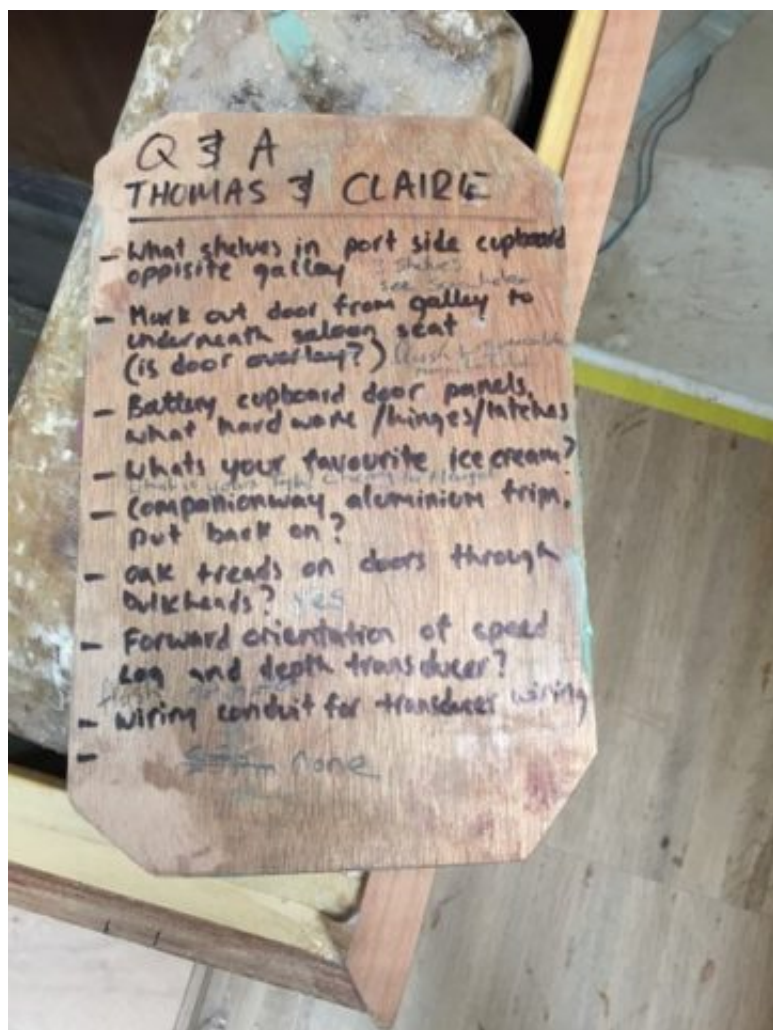 Q & A
THOMAS & CLAIRE
- What shelves in port side cupboard
opposite galley
shelves
see
- Mark out door from galley to
underneath saloon seat
(is door overlay?)
- Battery cupboard door panels,
what hardware/hinges/latches
- Whats your favourite ice cream?
- Companionway aluminium trim,
put back on?
- oak treads on doors through
bulkheads? yes
- Forward orientation of speed
Log and depth transducer?
- wiring conduit for transducer wiring
- none